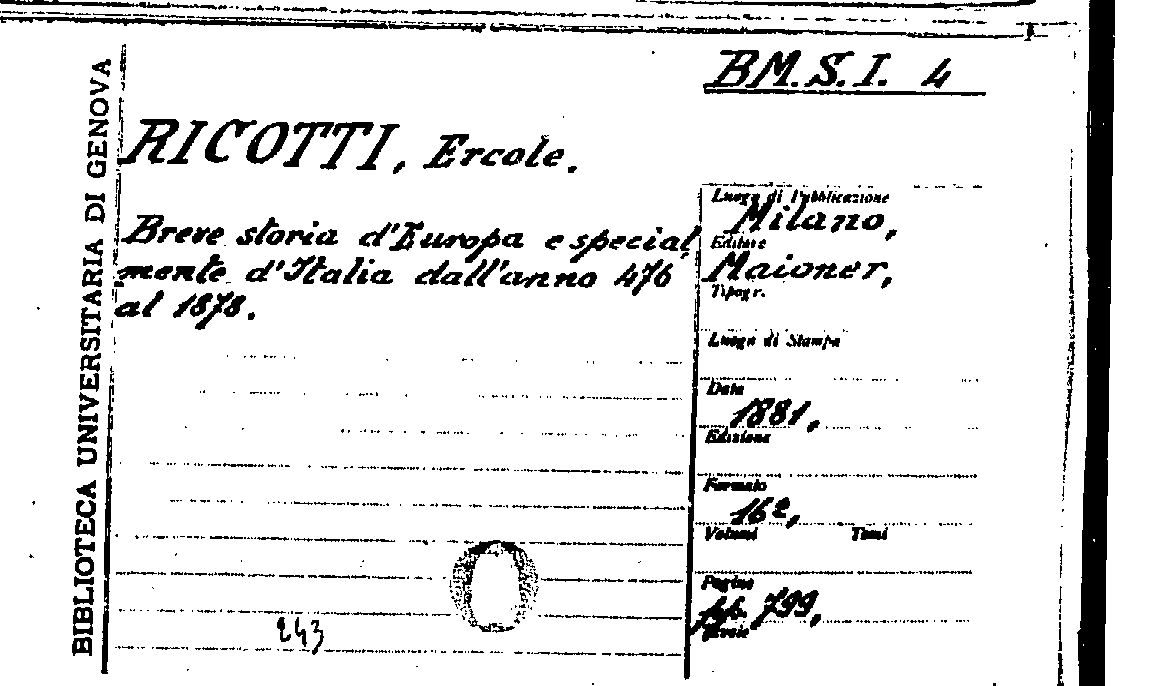 BIBLIOTECA UNIVERSITARIA DI GENOVA
BM. S. I. 4
RICOTTI, Ercole.
Breve storia d'Europa e special
mente d'Italia dall'anno 476
al 1878.
Luogo di Pubblicazione
Milano,
Editore
Maioner,
Tipogr.
Luogo di Stampa
Data
1881,
Edizione
Formato
16º,
Volumi Tomi
Pagine
pp. 799,
Tavole
243